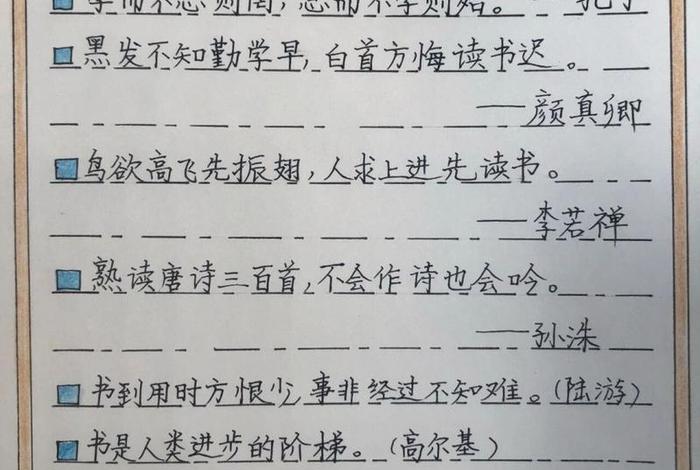 学而不思则罔，思而不学则殆。——孔子
黑发不知勤学早，白首方悔读书迟。
——颜真卿
鸟欲高飞先振翅，人求上进先读书。
——李若禅
熟读唐诗三百首，不会作诗也会吟。
——孙洙
书到用时方恨少，事非经过不知难。（陆游）
书是人类进步的阶梯。（高尔基）